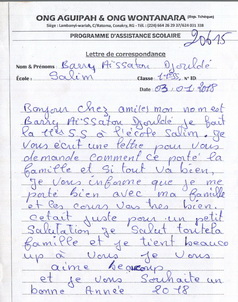 ONG AGUIPAH & ONG WONTANARA
PROGRAMME D'ASSISTANCE SCOLAIRE
20615
Lettre de correspondance
Nom & Prénoms : Barry Aïssatou Djouldé
École : Salim Classe : 11ème N° ID:
Date : 03-01-2018
Bonjour chez ami(e) mon nom est
Barry Aïssatou Djouldé je fait
la 11ème S.S à l'école Salim. Je
Vous écrit une lettre pour vous
demande comment ce porte la
famille et si tout va bien.
Je vous informe que je me
porte bien avec ma famille
et les cours vas tres bien.
cetait juste pour un petit
Salutation je Salut toute la
famille et je tient beauco
up à vous je vous
aime beaucoup
et je vous Souhaite un
bonne Année 2018